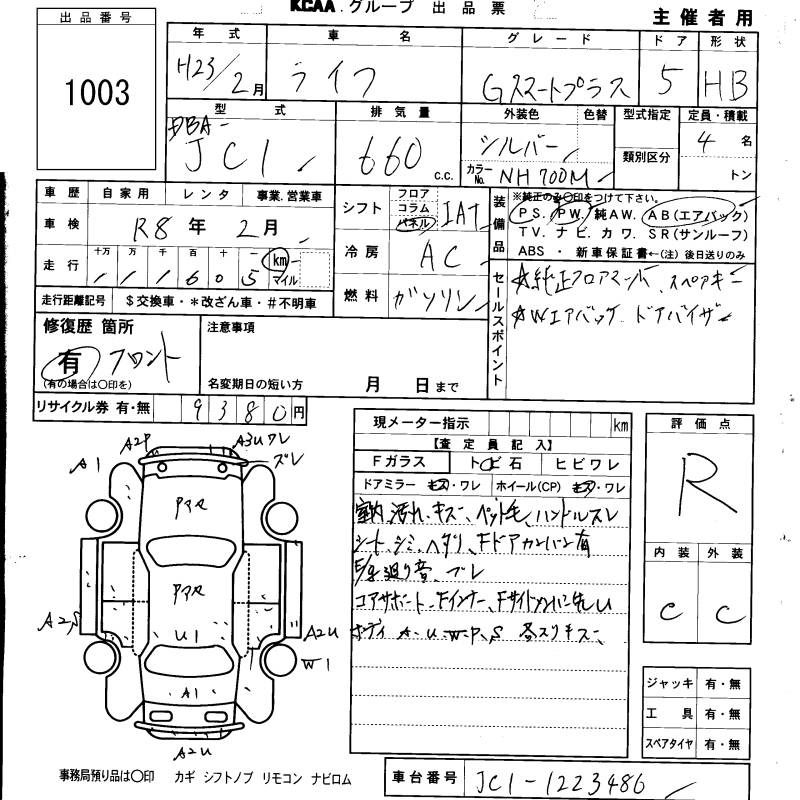 KCAA.グループ 出品票
主催者用
出品番号
1003
年式
車名
グレード
ドア
形状
H23/2月
ライフ
Gスマートプラス
5
HB
型式
排気量
外装色
色替
型式指定
定員・積載
DBA-
JC1
660 c.c.
シルバー
カラーNo. NH700M
類別区分
4名
トン
車歴 自家用 レンタ 事業.営業車
車検 R8年2月
走行 十万 万 千 百 十 一 km マイル
1 1 1 6 0 5
走行距離記号 $交換車・*改ざん車・#不明車
シフト フロア コラム パネル IAT
冷房 AC
燃料 ガソリン
装備品
※純正のみ〇印をつけて下さい。
PS. PW. 純AW. AB(エアバック)
TV. ナビ. カワ. SR(サンルーフ)
ABS ・ 新車保証書←(注)後日送りのみ
セールスポイント
☆純正フロアマット、スペアキー
☆Wエアバッグ、ドアバイザー
修復歴 箇所
有 フロント
(有の場合は〇印を)
注意事項
名変期日の短い方 月 日まで
リサイクル券 有・無 9380円
現メーター指示 km
【査定員記入】
Fガラス トビ石 ヒビワレ
ドアミラー キズ・ワレ ホイール(CP) キズ・ワレ
室内 汚れ、キズ、ペット毛、ハンドルスレ
シート、シミ、ヘタリ、Fドアカンバン有
E/g廻り音、ブレ
コアサポート、Fインナー、Fサイドメンバーに先U
ボディ A・U・W・P、S 多スリキズ、
評価点
R
内装 外装
C C
ジャッキ 有・無
工具 有・無
スペアタイヤ 有・無
A2P
A3Uワレ
ズレ
A1
アマR
アマR
U1
A2,S
A2U
W1
A1
A2U
事務局預り品は〇印 カギ シフトノブ リモコン ナビロム
車台番号 JC1-1223486